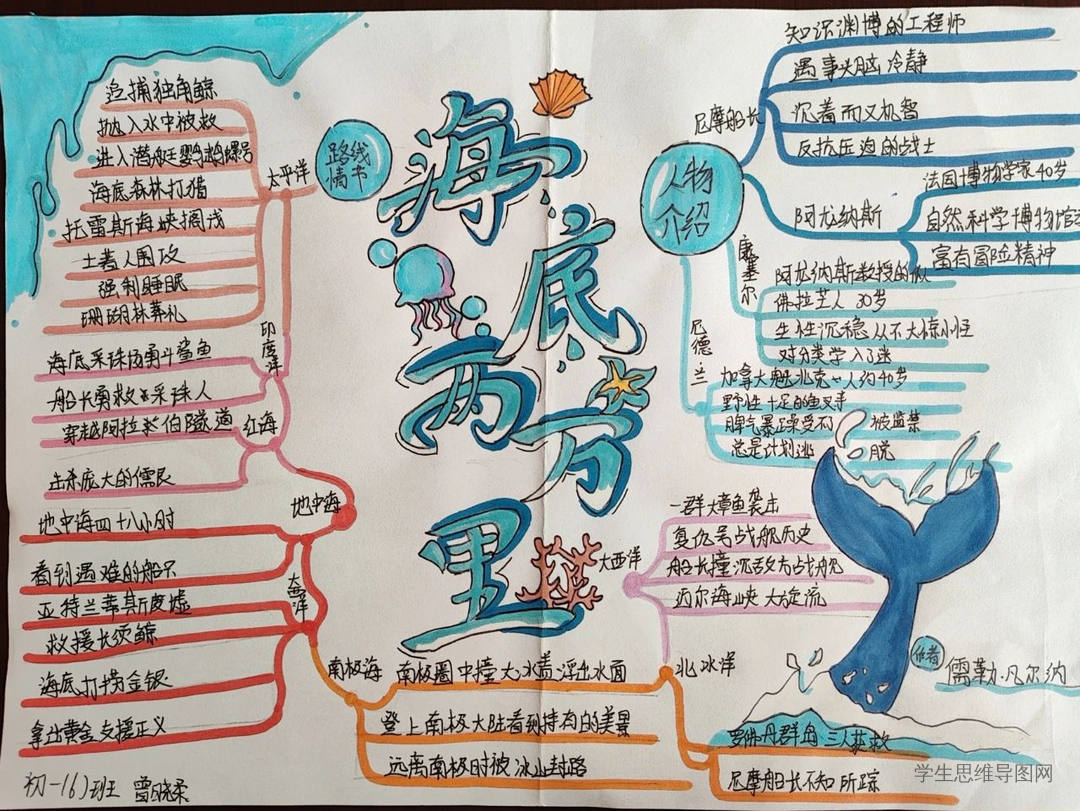 海底两万里
路线
情书
太平洋
追捕独角鲸
抛入水中被救
进入潜艇鹦鹉螺号
海底森林打猎
托雷斯海峡搁浅
土著人围攻
强制睡眠
珊瑚林葬礼
印度洋
海底采珠场勇斗鲨鱼
船长勇救采珠人
红海
穿越阿拉伯隧道
击杀庞大的儒艮
地中海
地中海四十八小时
大西洋
看到遇难的船只
亚特兰蒂斯废墟
救援长须鲸
海底打捞金银
拿出黄金支援正义
南极海
南极圈中撞大冰盖浮出水面
登上南极大陆看到特有的美景
远离南极时被冰山封路
大西洋
一群大章鱼袭击
复仇号战舰历史
船长撞沉敌方战舰
迈尔海峡大旋流
北冰洋
罗佛丹群岛三人获救
尼摩船长不知所踪
人物
介绍
尼摩船长
知识渊博的工程师
遇事头脑冷静
沉着而又机智
反抗压迫的战士
阿龙纳斯
法国博物学家40岁
自然科学博物馆
富有冒险精神
康塞尔
阿龙纳斯教授的仆
佛拉芒人 30岁
生性沉稳从不大惊小怪
对分类学入了迷
尼德·兰
加拿大魁北克人约40岁
野性十足的鱼叉手
脾气暴躁受不 被监禁
总是计划逃 脱
作者
儒勒·凡尔纳
初一16)班 曾晓柔
学生思维导图网